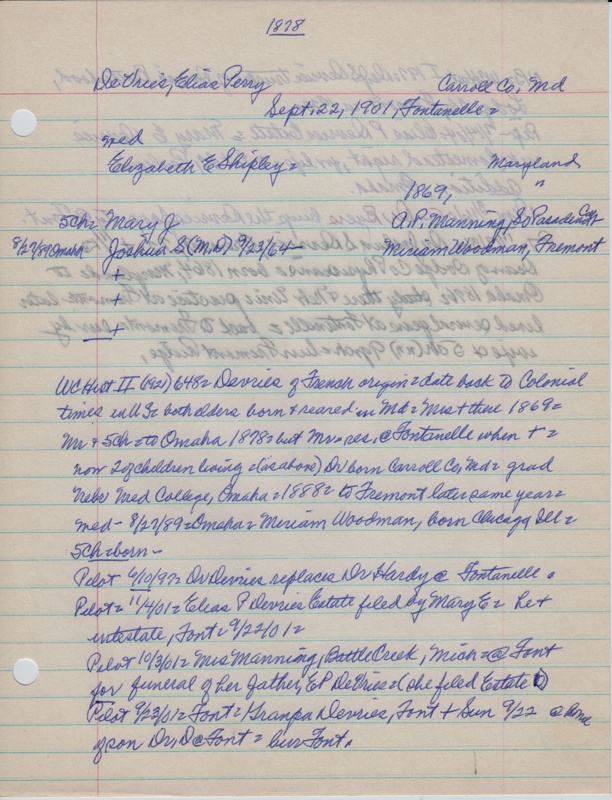 1878
DeVries, Elias Perry Carroll Co, Md
Sept. 22, 1901, Fontanelle =
med
Elizabeth E Shipley = Maryland
1869, "
5ch= Mary J A. P. Manning, So Pasadena
8/27/89 Omaha Joshua S (M.D.) 9/23/64 — Miriam Woodman, Fremont
+
+
+
WC Hist II (1921) 648= Devries of French origin = date back to Colonial
times in U S = both elders born + reared in Md = Mrs + there 1869=
Mr + 5ch = to Omaha 1878 = but Mr. res. @ Fontanelle when + =
now 2 of children living = (as above) Dr born Carroll Co, Md = grad
Nebr Med College, Omaha = 1888 = to Fremont later same year =
med - 8/27/89 = Omaha = Miriam Woodman, born Chicago Ill =
5ch = born -
Pilot 6/10/97= Dr Devries replaces Dr Hardy @ Fontanelle .
Pilot = 11/4/01 = Elias P Devries Estate filed by Mary E = he +
intestate, Font = 9/22/01 =
Pilot 10/3/01 = Mrs Manning, Battle Creek, Mich = @ Font
for funeral of her father, E P DeVries = (she filed Estate )
Pilot 9/23/01 = Font = Granpa Devries, Font + Sun 9/22 @ home
of son Dr. D @ Font = bur Font .